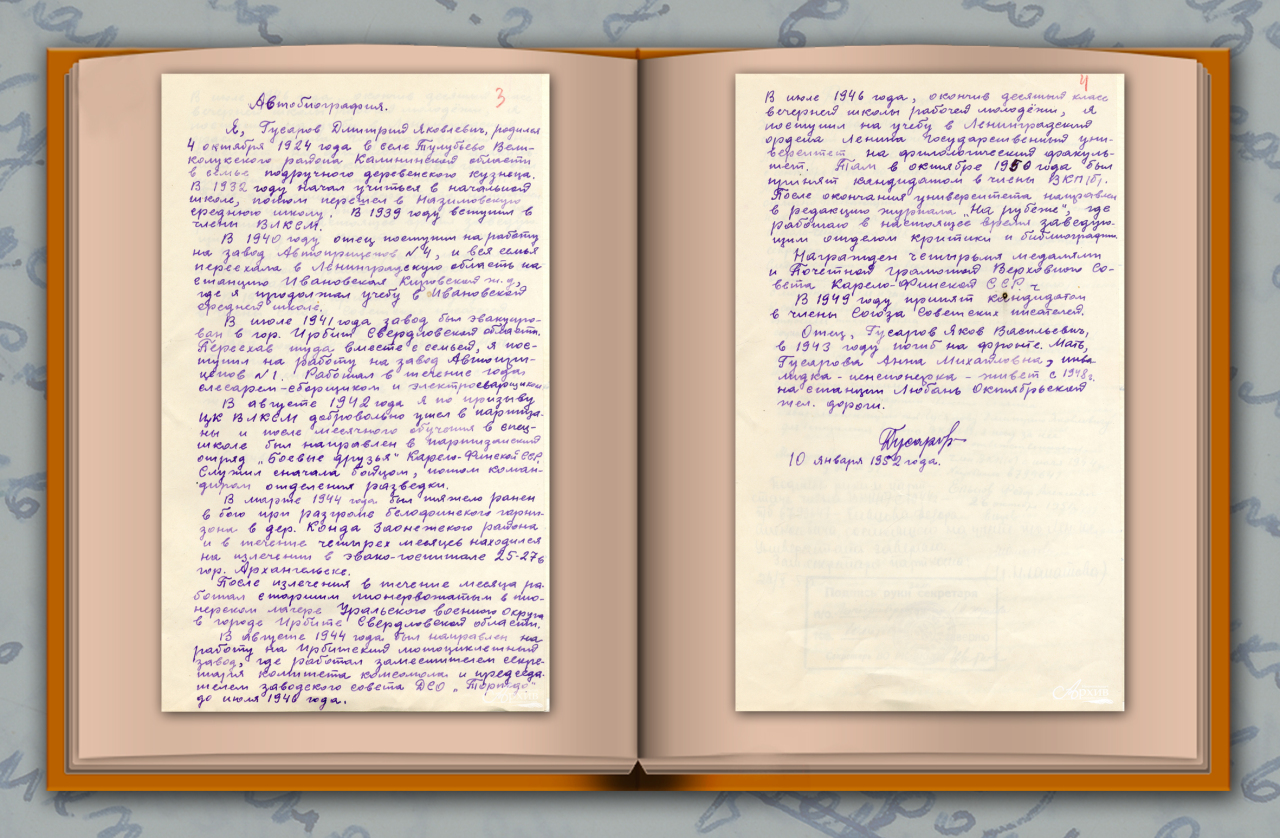 3
Автобиография.
Я, Гусаров Дмитрий Яковлевич, родился
4 октября 1924 года в селе Тулубьево Вели-
колукского района Калининской области
в семье подручного деревенского кузнеца.
В 1932 году начал учиться в начальной
школе, потом перешел в Назимовскую
среднюю школу. В 1939 году вступил в
члены ВЛКСМ.
В 1940 году отец поступил на работу
на завод Автоприцепов №4, и вся семья
переехала в Ленинградскую область на
станцию Ивановская Кировской ж.д.,
где я продолжал учебу в Ивановской
средней школе.
В июле 1941 года завод был эвакуиро-
ван в гор. Ирбит Свердловской области.
Переехав туда вместе с семьей, я пос-
тупил на работу на завод Автопри-
цепов №1. Работал в течение года
слесарем-сборщиком и электросварщиком
В августе 1942 года я по призыву
ЦК ВЛКСМ добровольно ушел в партиза-
ны и после месячного обучения в спец-
школе был направлен в партизанский
отряд „Боевые друзья" Карело-Финской ССР.
Служил сначала бойцом, потом коман-
диром отделения разведки.
В марте 1944 года был тяжело ранен
в бою при разгроме белофинского гарни-
зона в дер. Конда Заонежского района
и в течение четырех месяцев находился
на излечении в эвако-госпитале 25-27 в
гор. Архангельске.
После излечения в течение месяца ра-
ботал старшим пионервожатым в пио-
нерском лагере Уральского военного Округа
в городе Ирбите Свердловской области.
В августе 1944 года был направлен на
работу на Ирбитский мотоциклетный
завод, где работал заместителем секре-
таря комитета комсомола и председа-
телем заводского совета ДСО „Торпедо"
до июля 1946 года.
4
В июле 1946 года, окончив десятый класс
вечерней школы рабочей молодёжи, я
поступил на учебу в Ленинградский
ордена Ленина Государственный уни-
верситет на филологический факуль-
тет. Там в октябре 1950 года был
принят кандидатом в члены ВКП(б).
После окончания университета направлен
в редакцию журнала „На рубеже", где
работаю в настоящее время заведую-
щим отделом критики и библиографии.
Награжден четырьмя медалями
и Почетной грамотой Верховного Со-
вета Карело-Финской ССР.
В 1949 году принят кандидатом
в члены Союза Советских писателей.
Отец, Гусаров Яков Васильевич,
в 1943 году погиб на фронте. Мать,
Гусарова Анна Михайловна, инва-
лидка-пенсионерка - живет с 1948 г.
на станции Любань Октябрьской
жел. дороги.
Гусаров
10 января 1952 года.